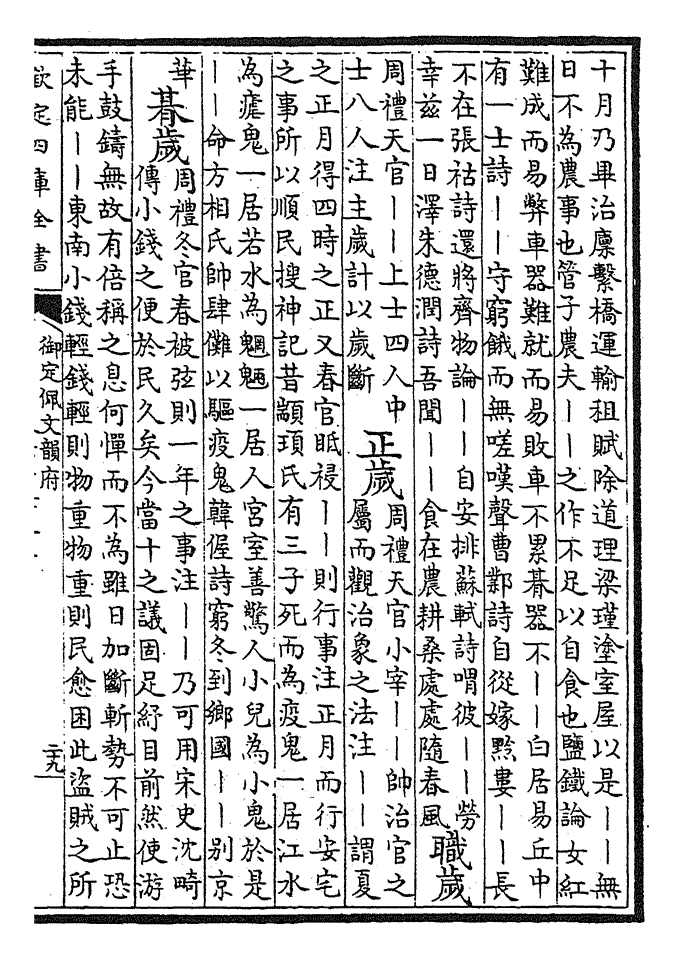 十月乃畢治廪繫橋運輸租賦除道理梁墐塗室屋以是｜｜無
日不為農事也管子農夫｜｜之作不足以自食也鹽鐵論女紅
難成而易弊車器難就而易敗車不累朞器不｜｜白居易丘中
有一士詩｜｜守窮餓而無嗟嘆聲曹鄴詩自從嫁黔婁｜｜長
不在張祜詩還將齊物論｜｜自安排蘇軾詩喟彼｜｜勞
幸兹一日澤朱德潤詩吾聞｜｜食在農耕桑處處隨春風
職歲
周禮天官｜｜上士四人中
士八人注主歲計以歲斷
正歲
周禮天官小宰｜｜帥治官之
屬而觀治象之法注｜｜謂夏
之正月得四時之正又春官眡祲｜｜則行事注正月而行安宅
之事所以順民搜神記昔顓頊氏有三子死而為疫鬼一居江水
為瘧鬼一居若水為魍魎一居人宮室善驚人小兒為小鬼於是
｜｜命方相氏帥肆儺以驅疫鬼韓偓詩窮冬到鄉國｜｜别京
華
朞歲
周禮冬官春被弦則一年之事注｜｜乃可用宋史沈畸
傳小錢之便於民久矣今當十之議固足紓目前然使游
手鼓鑄無故有倍稱之息何憚而不為雖日加斷斬勢不可止恐
未能｜｜東南小錢輕錢輕則物重物重則民愈困此盜賊之所
欽定四庫全書
御定佩文韻府
二十九